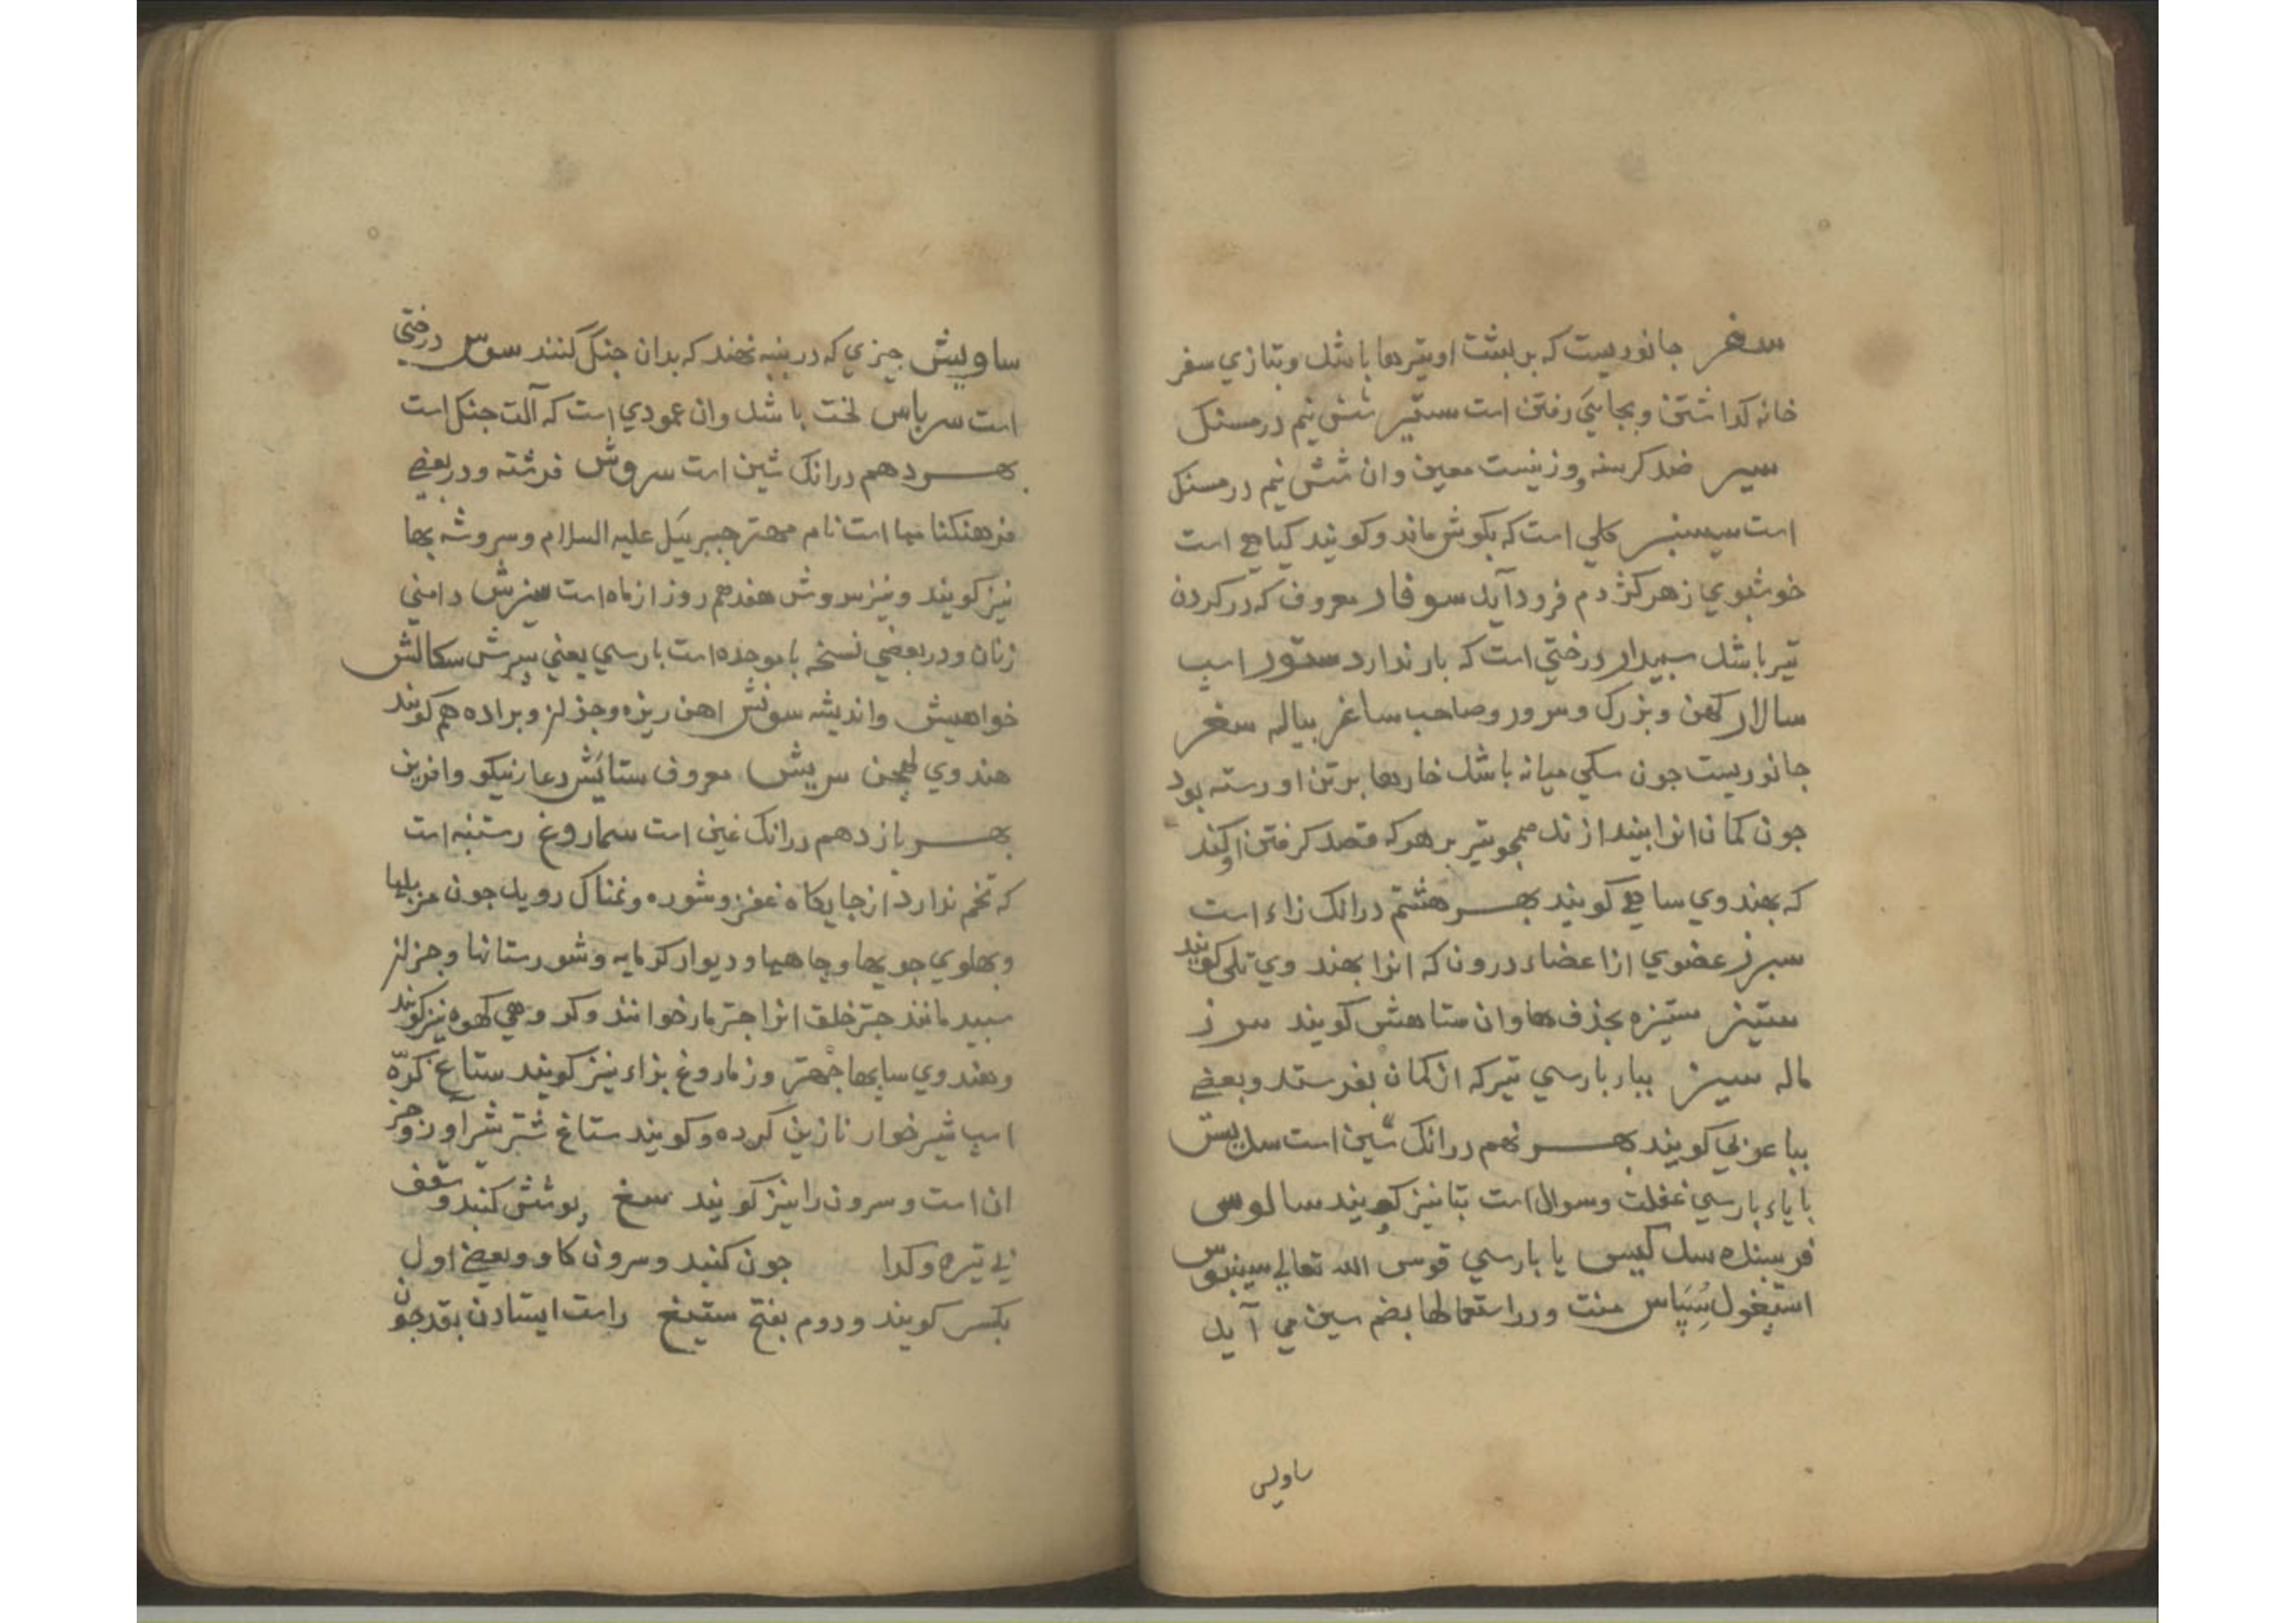 سغر جانوریست که بر بشت او تیرها باشد و بتازی سفر
خانه کذاشتن و بجایی رفتن است ستیر شش نیم درمسنک
سیر ضد کرسنه و وزنیست معین و ان شش نیم درمسنک
است سیسنبر کلی است که بکوش ماند و کویند کیاهی است
خوشبوی زهر کژدم فرود آید سوفار معروف که در کردن
تیر باشد سبیدار درختی است که بار ندارد ستور اسب
سالار کهن و بزرک و سرور و صاحب ساغر بیاله سغر
جانوریست جون سکی میانه باشد خارها بر تن او رسته بود
جون کمان انرا بیندازند همجو تیر بر هر که قصد کرفتن او کند
که بهندوی ساهی کویند بهر هشتم درانک زاء است
سبرز عضوی از اعضاء درون که انرا بهندوی تلی کویند
ستیز ستیزه بحذف ها و ان ستاهش کویند سرز
ماله سیز بباء بارسی تیر که از کمان بفرستد و بعضی
ببا عربی کویند بهر نهم درانک سین است
با یاء بارسی غفلت و سوال است بتا نیز کویند سالوس
فرسنده یا بارسی قوسی الله تعالی سینوس
اسبغول سپاس منت و در استعمالها بضم سین می آید
ساویس
ساویش جیزی که در بنبه نهند که بدان جنک کنند سوس درختی
است سرباس لخت باشد و ان عمودی است که آلت جنک است
بهر دهم درانک شین است سروش فرشته و در بعضی
فرهنکنامها است نام مهتر جبرییل علیه السلام و سروشه بها
نیز کویند و نیز سروش هفدهم روز از ماه است سنرش دامنی
زنان و در بعضی نسخه با موحده است بارسی یعنی سپرش سکالش
خواهیش و اندیشه سونش اهن ریزه و جز از و براده هم کویند
هندوی لهجن سریش معروف ستایش دعا نیکو و افرین
بهر یازدهم درانک غین است سماروغ رستنیه است
که تخم ندارد از جایکاه عفن و شوره و نمناک روید جون مزبلها
و بهلوی جویها و جاهها و دیوار کرمابه و شورستانها و جز از
سبید مانند جتر خلق انرا جتر مار خوانند و کروهی کهوه نیز کویند
و هندوی سابها جهتر و زماروغ بزاء نیز کویند ستاغ کرّه
اسب شیر خوار نازین کرده و کویند ستاغ شتر شیر آور و جز
ان است و سرون را نیز کویند سغ پوشش کنبد و سقف
نی تیره و کدا جون کنبد و سرون کاو و بعضی اول
بکسر کویند و دوم بفتح ستیغ راست ایستادن بقد جون